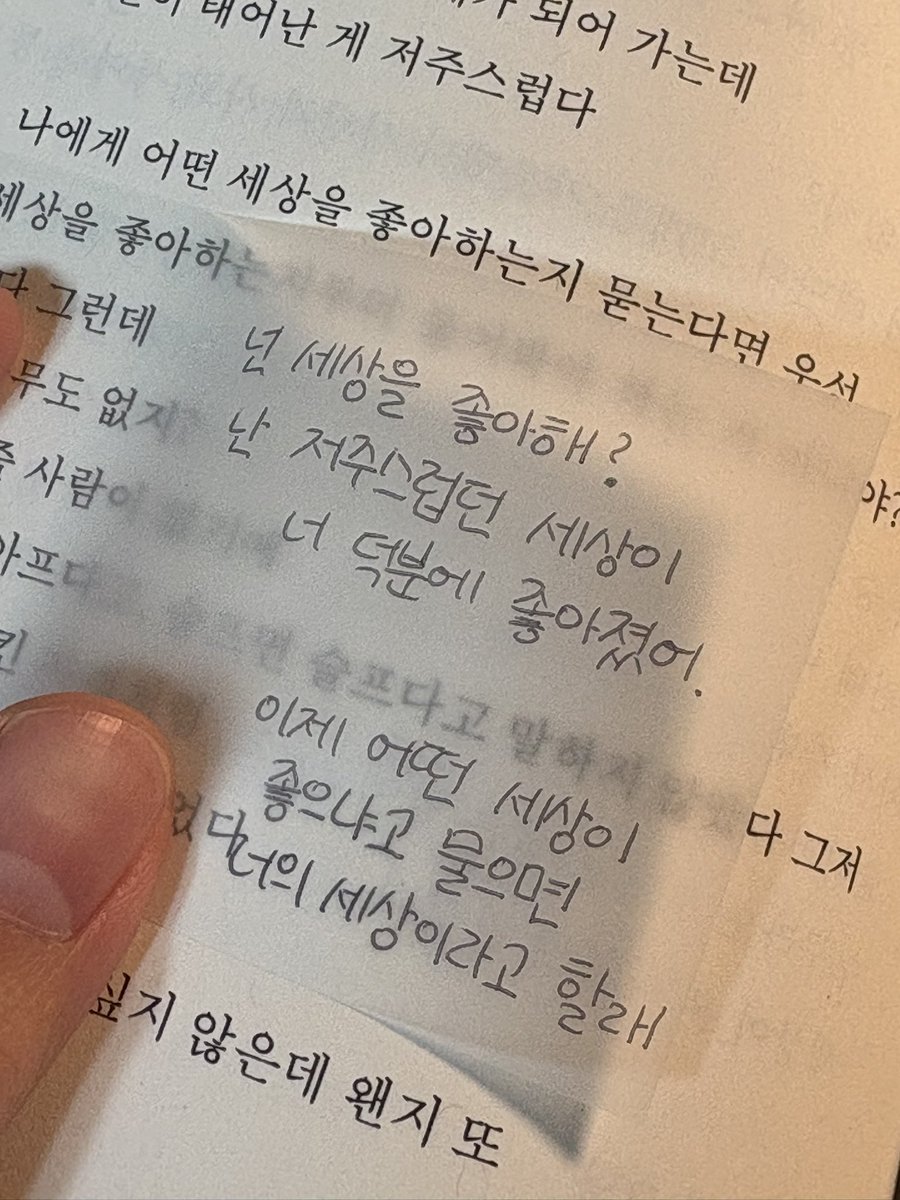 되어 가는데
태어난 게 저주스럽다
나에게 어떤 세상을 좋아하는지 묻는다면 우선
세상을 좋아하는
다 그런데
야?
무도 없지
줄 사람이
아프다 슬프면 슬프다고 말하지
킨
없다
다 그저
싶지 않은데 왠지 또
넌 세상을 좋아해?
난 저주스럽던 세상이
너 덕분에 좋아졌어.
이제 어떤 세상이
좋으냐고 물으면
너의 세상이라고 할래